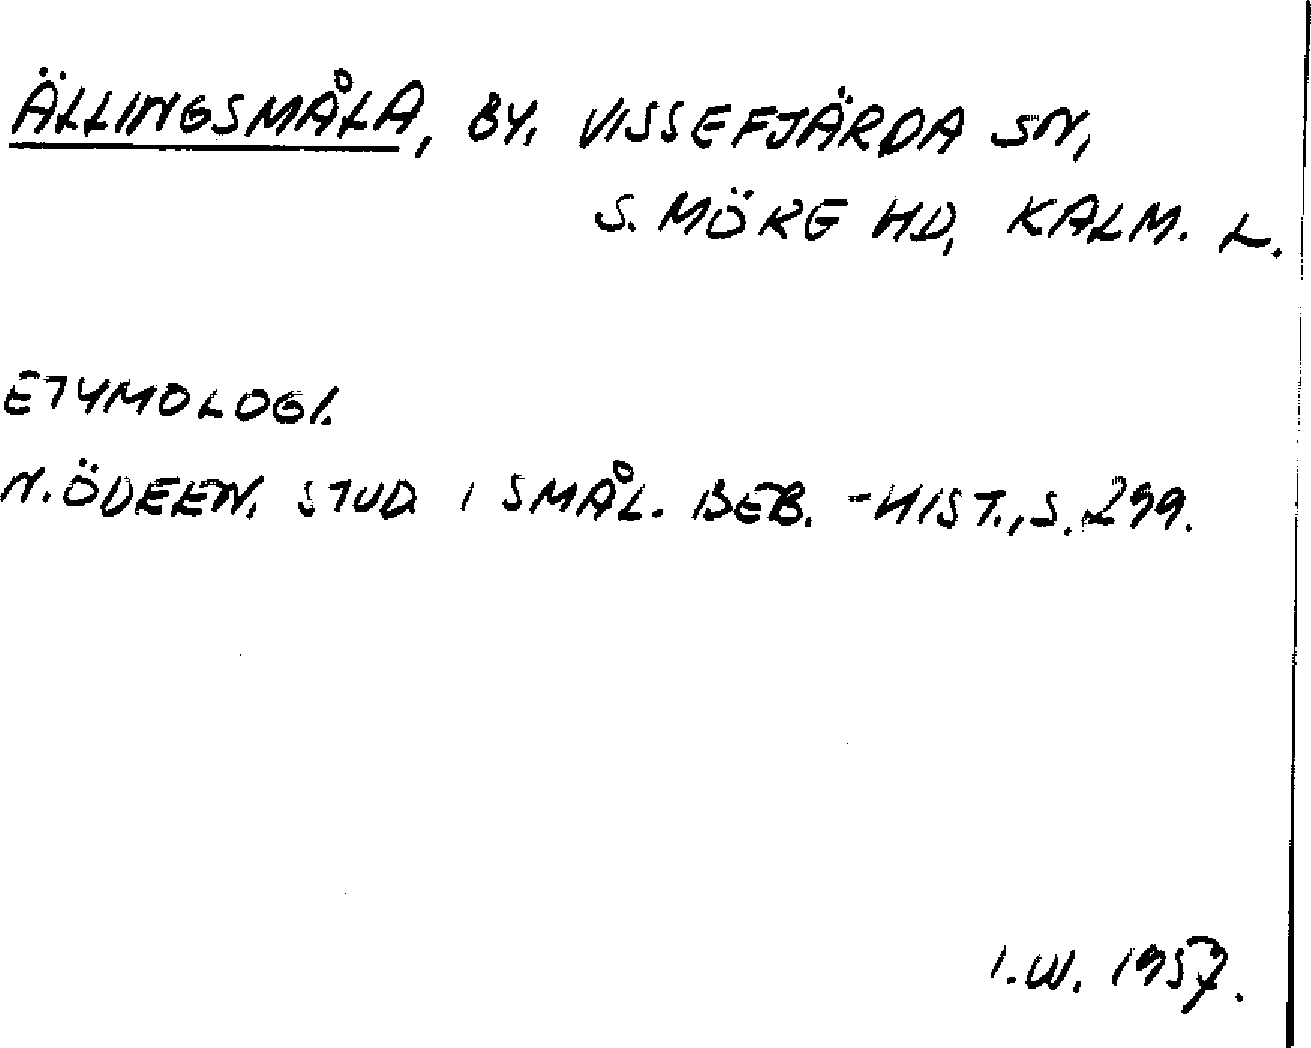 ÄLLINGSMÅLA, BY. VISSEFJÄRDA SN,
S. MÖRE HD, KALM. L.
ETYMOLOGI.
N. ÖDEEN, STUD I SMÅL. BEB. -HIST., S. 299.
I.W. 1957.